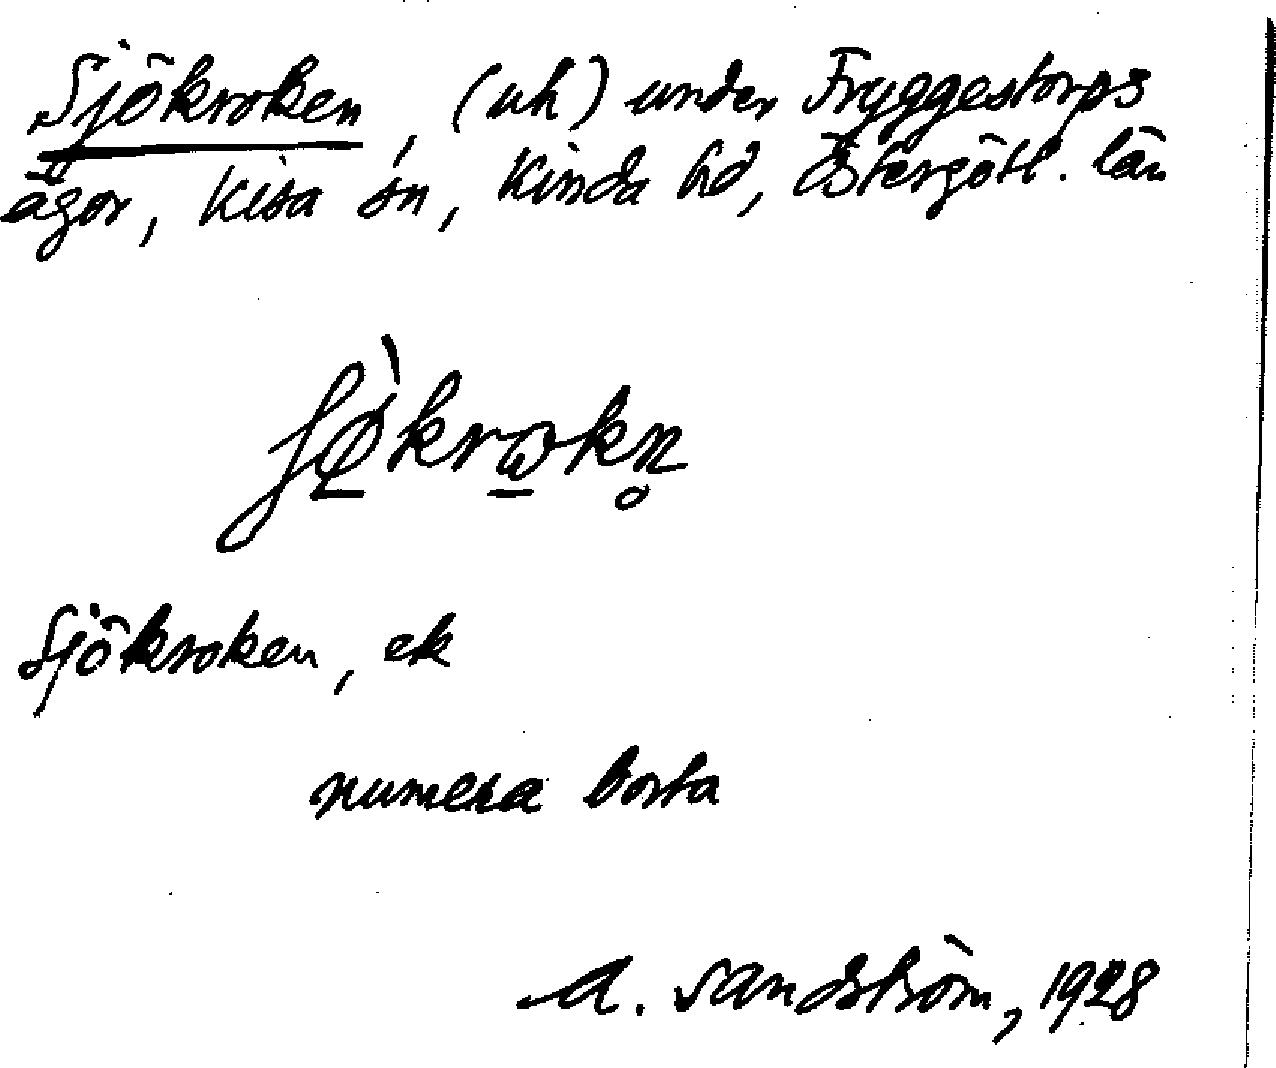 Sjökroken, (uh) under Fryggestorps
ägor, Kisa sn, Kinda hd, Östergötl. län
ʃø̠̀krω̠kn̥
Sjökroken, ek
numera borta
A. Sandström, 1928